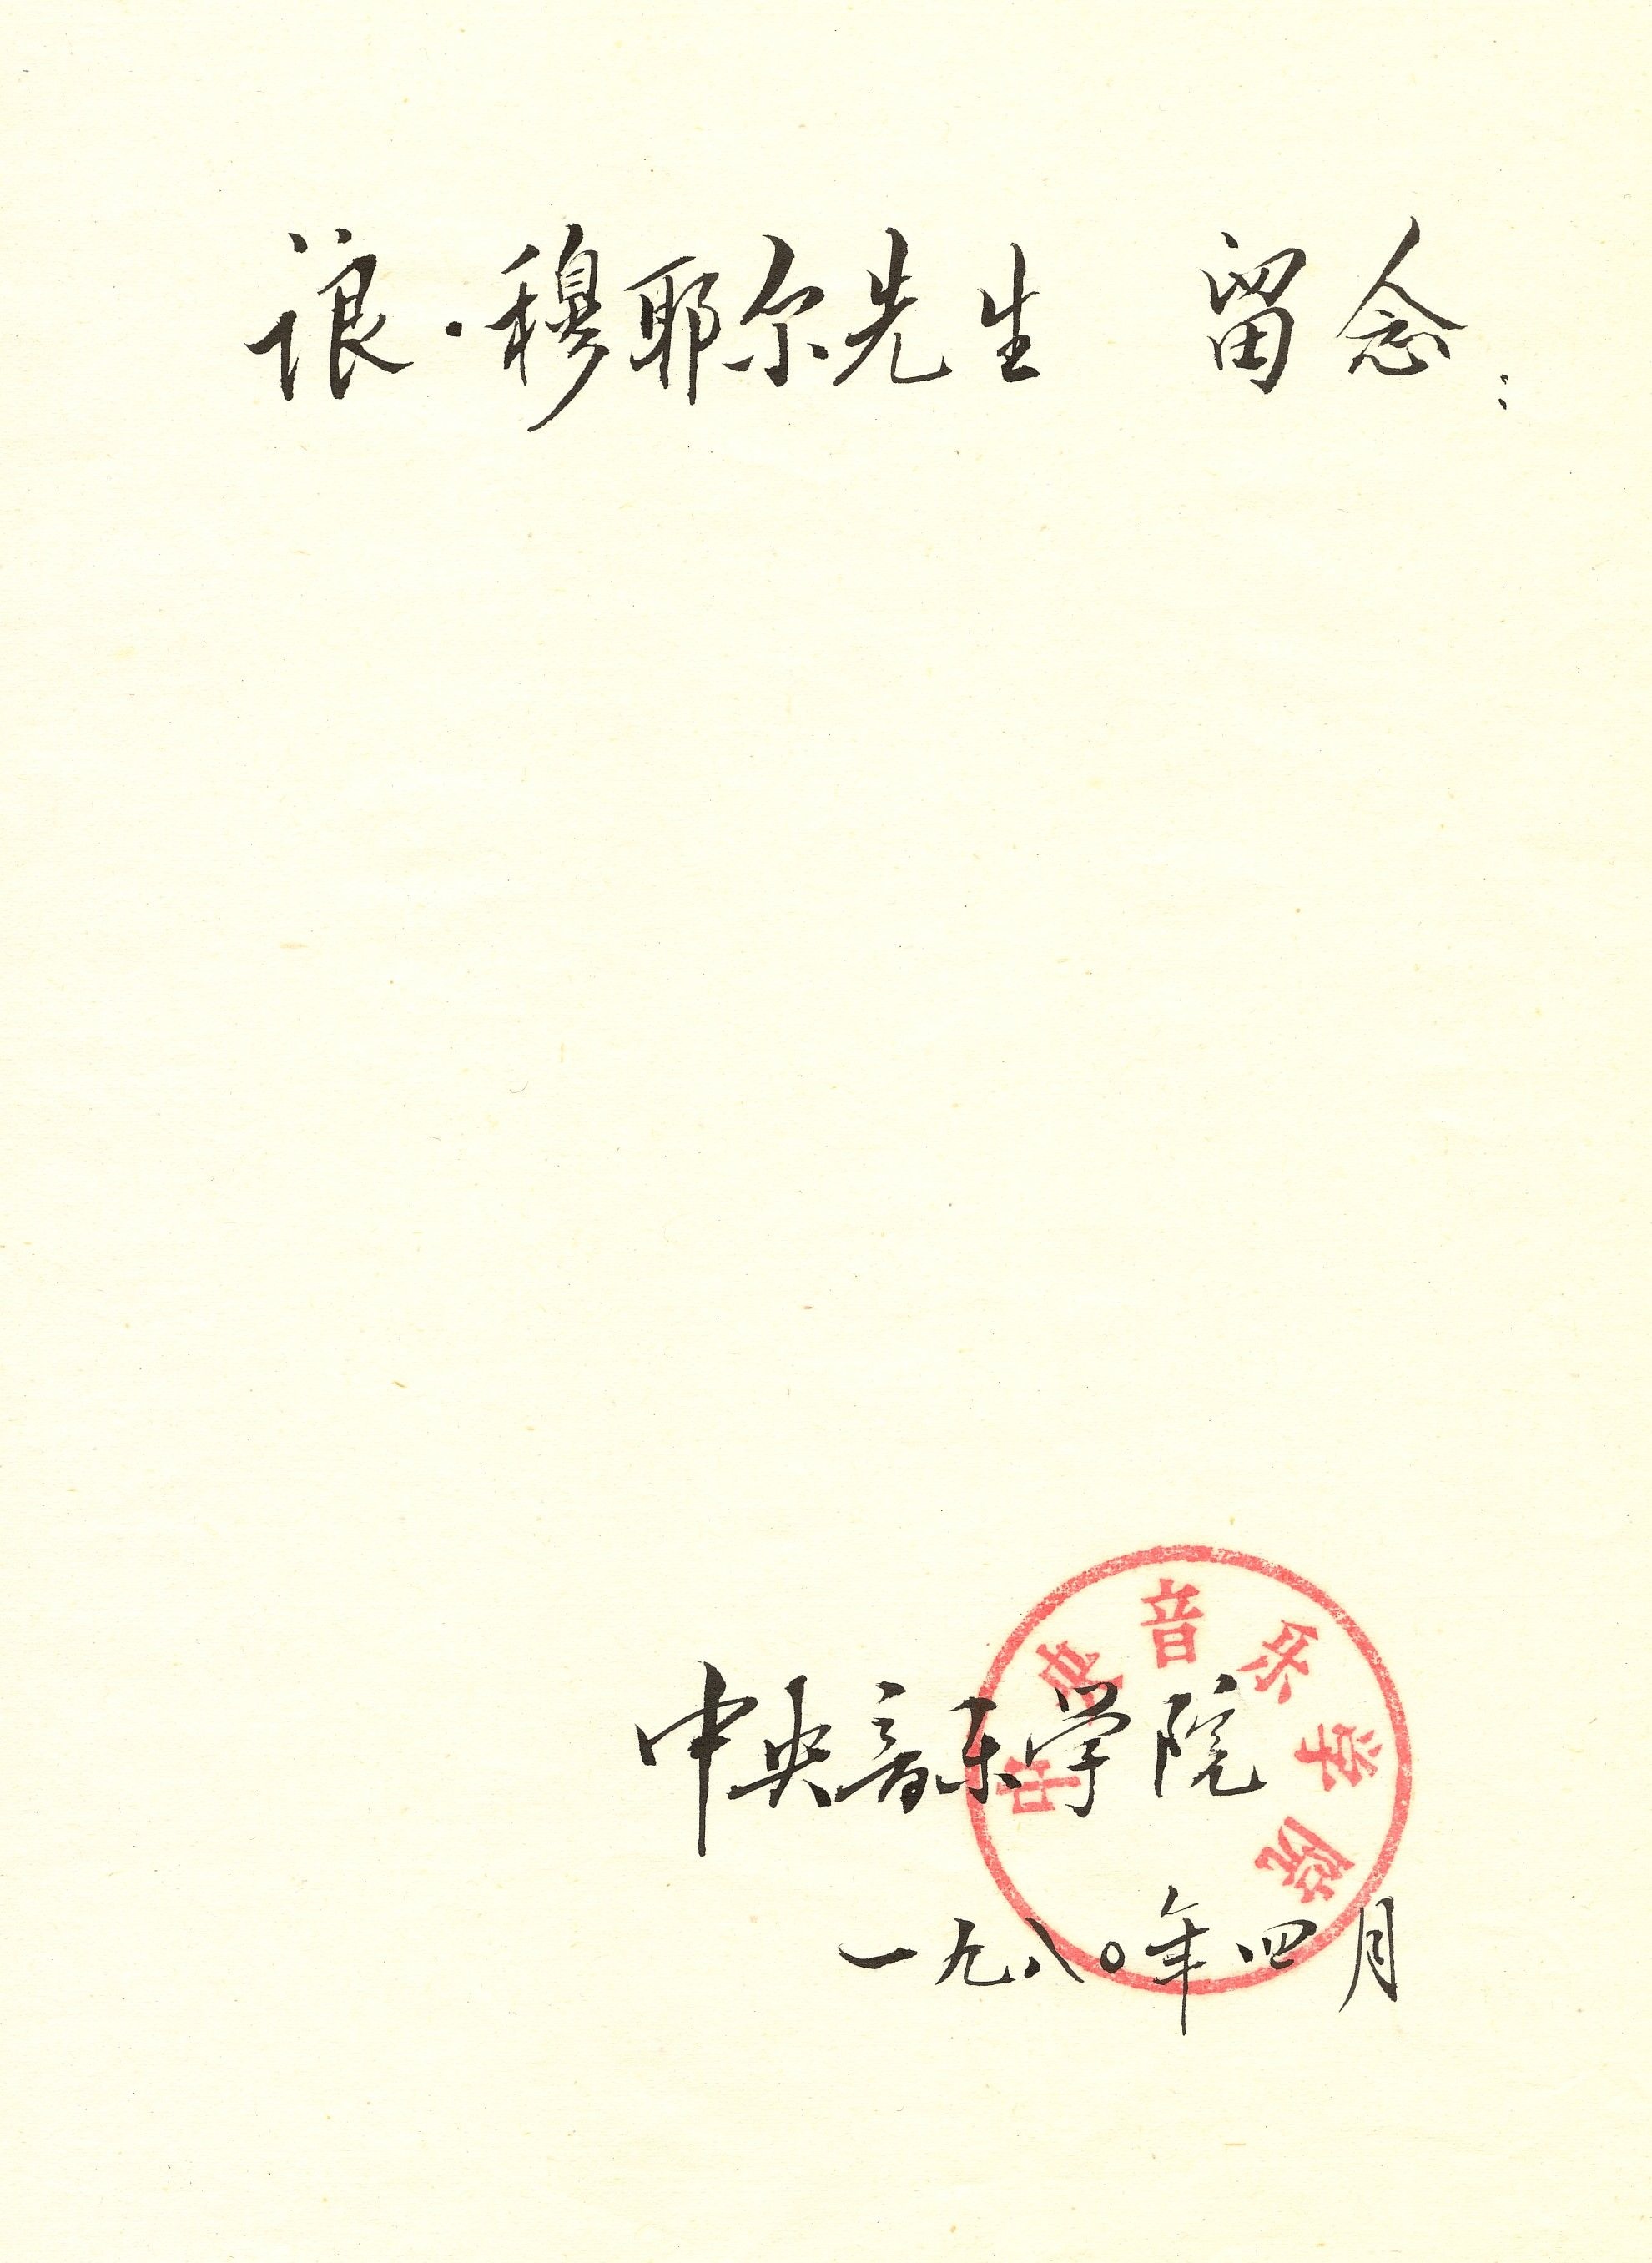 ·穆耶尔先生 留念:
中央音乐学院
中央音乐学院
一九八〇年四月